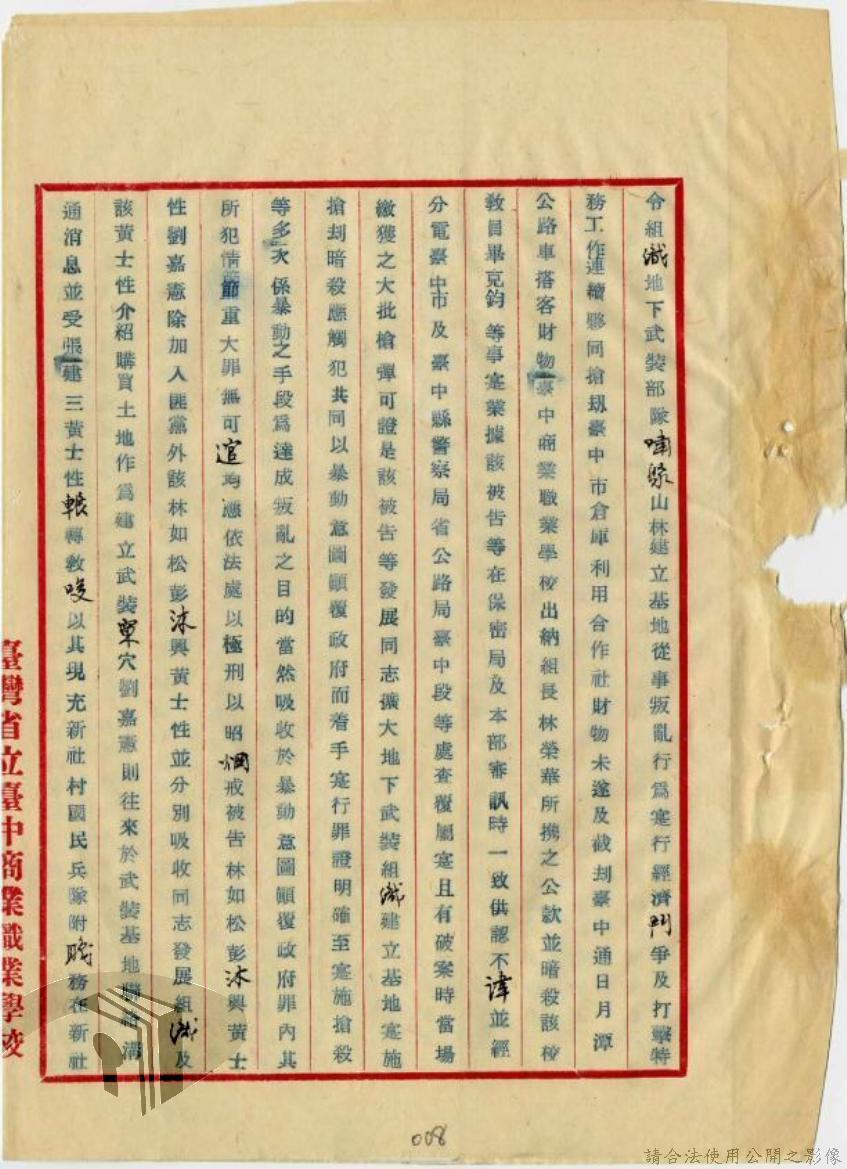 令組織地下武裝部隊嘯聚山林建立基地從事叛亂行為寔行經濟鬥爭及打擊特
務工作連續夥同搶刼臺中市倉庫利用合作社財物未遂及截刧臺中通日月潭
公路車搭客財物臺中商業職業學校出納組長林榮華所携之公款並暗殺該校
教員畢克鈞等事寔業據該被告等在保密局及本部審訊時一致供認不諱並經
分電臺中市及臺中縣警察局省公路局臺中段等處查覆屬寔且有破案時當場
繳獲之大批槍彈可證是該被告等發展同志擴大地下武裝組織建立基地寔施
搶刧暗殺應觸犯共同以暴動意圖顛覆政府而着手寔行罪證明確至寔施搶殺
等多次係暴動之手段爲達成叛亂之目的當然吸收於暴動意圖顛覆政府罪內其
所犯情節重大罪無可逭均應依法處以極刑以昭炯戒被告林如松彭沐興黃士
性劉嘉憲除加入匪黨外該林如松彭沐興黃士性並分別吸收同志發展組織及
該黃士性介紹購買土地作爲建立武裝巢穴劉嘉憲則往來於武裝基地聯絡溝
通消息並受張建三黃士性輾轉教唆以其現充新社村國民兵隊附職務在新社
臺灣省立臺中商業職業學校
008
請合法使用公開之影像